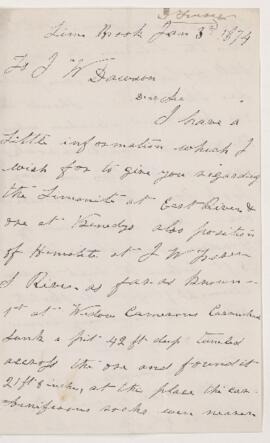 Lime Brook Jan 3rd 1874
To J W Dawson
Dear Sir
I have a
little information which I
wish for to give you regarding
the Limonite at East River &
ore at also position
of Hemitite at J W
River as far as Known
1st at Widow Camerons
Sunk a pit 42 ft deep tuneled
across the ore and found it
21 ft 8 inches, at the place the car-
boniferous rocks were nearer